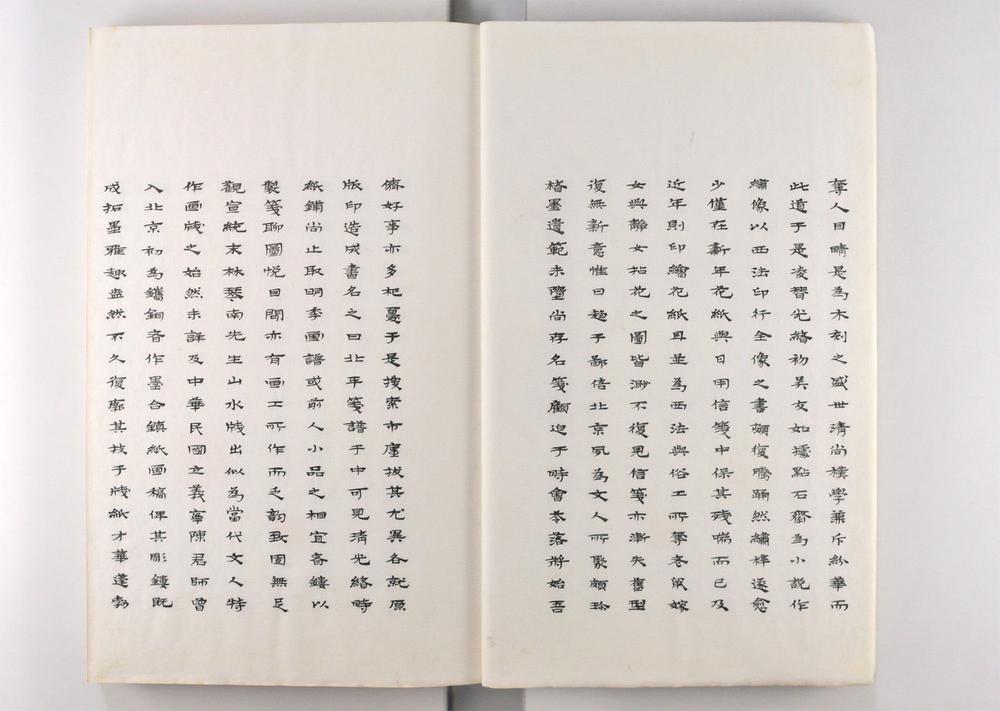 奪人目睛是為木刻之盛世清尚樸學兼斥紛華而
此道于是凌替光緒初吳友如據點石齋為小說作
繡像以西法印行全像之書頗復騰踊然繡梓遂愈
少僅在新年花紙與日用信箋中保其殘喘而已及
近年則印繪花紙且並為西法與俗工所奪老鼠嫁
女與靜女拈花之圖皆渺不復見信箋亦漸失舊型
復無新意惟日趨于鄙倍北京夙為文人所聚頗珍
楮墨遺範未墮尚存名箋顧迫于時會苓落將始吾
儕好事亦多杞憂于是搜索市廛拔其尤異各就原
版印造成書名之曰北平箋譜于中可見清光緒時
紙鋪尚止取明季畫譜或前人小品之相宜者鏤以
製箋聊圖悅目間亦有画工所作而乏韵致固無足
觀宣統末林琴南先生山水牋出似為當代文人特
作画牋之始然未詳及中華民國立義寧陳君師曾
入北京初為鐫銅者作墨合鎮紙畫稿俾其彫鏤既
成拓墨雅趣盎然不久復廓其技于牋紙才華蓬勃